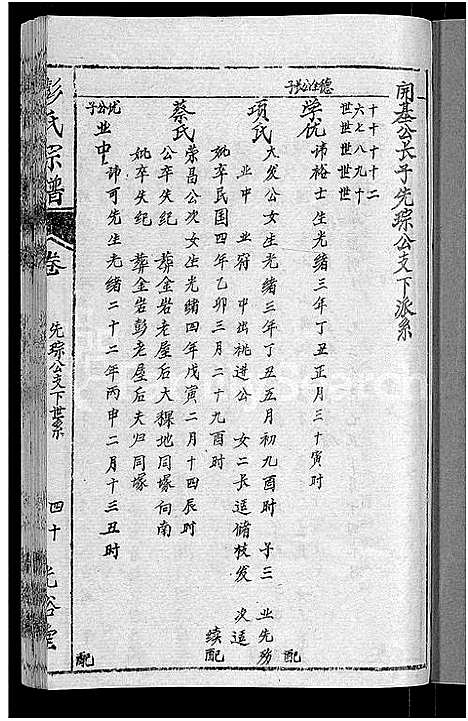 開基公長子先琮公支下派系
十六世 十七世 十八世 十九世 二十世
德佺公長子
学优 諱裕士生光緒三年丁丑正月三十寅时 配
項氏 大发公女生光緒三年丁丑五月初九酉时 子三 业先殇
业中 业窍 中出祧进公 女二长适储枝发 次适
妣卒民国四年乙卯三月二十九酉时 续配
蔡氏 荣昌公次女生光绪四年戊寅二月十四辰时
公卒失纪 葬金岩老屋后大稞地同塚向南
妣卒失纪 葬金岩彭老屋后夫归同塚
优公子
业中 諱可先生光绪二十二年丙申二月十三丑时 配
彭氏宗譜
卷
先琮公支下世系
四十
光裕堂